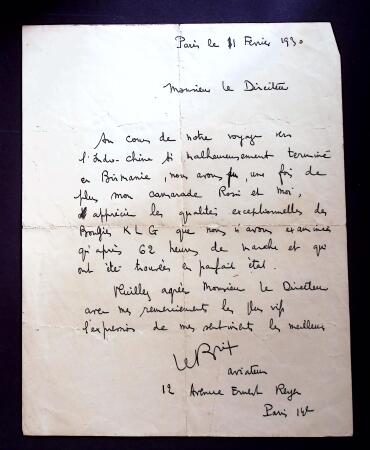 Paris le 11 Février 1930
Monsieur le Directeur
Au cours de notre voyage vers
l'Indo-Chine si malheureusement terminé
en Birmanie, nous avons pu, une fois de
plus mon camarade Rossi et moi,
apprécier les qualités exceptionnelles des
Bougies KLG que nous n'avons examinées
qu'après 62 heures de marche et qui
ont été trouvées en parfait état.
Veuillez agréer Monsieur le Directeur
avec mes remerciements les plus vifs
l'expression de mes sentiments les meilleurs
Le Brix
aviateur
12 Avenue Ernest Reyer
Paris 14e